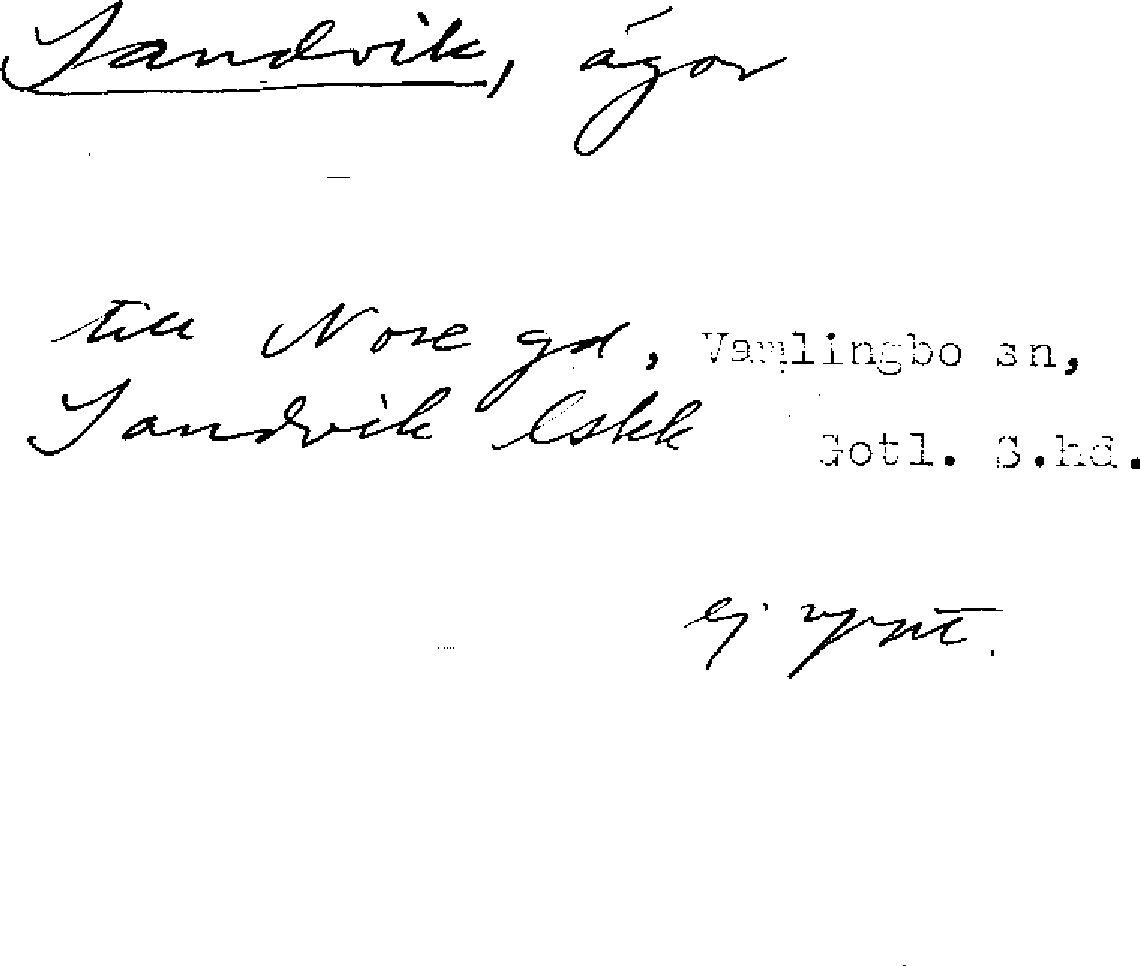 Sandvik, ägor
till Nore gd, Vamlingbo sn,
Sandvik lskk Gotl. S.hd.
ej